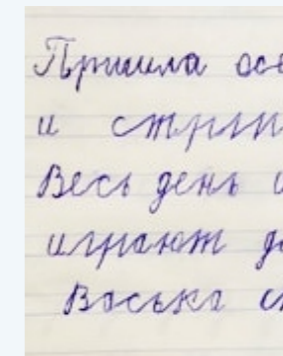 Пришла осе
и стрги
Весь день и
играют д
Васька с